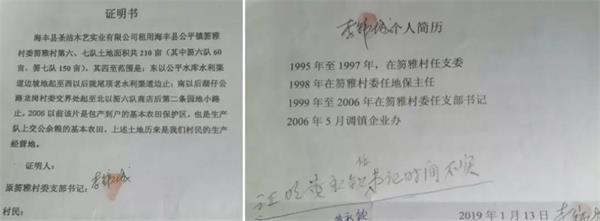 证明书
海丰县圣洁木艺实业有限公司租用海丰县公平镇笏雅
村委笏雅村第六、七队土地面积共210亩（其中笏六队60
亩，笏七队150亩），其四至范围是：东以公平水库水利渠
道边坡地起至西以后陇尾顶老水利渠道边止；南以后湖仔公
路龙岗村委交界处起至北以笏六队商店后第二条园地小路
止。2006以前该片是包产到户的基本农田保护区，也是生产
队上交公余粮的基本农田，上述土地历来是我们村民的生产
经营地。
证明人：
原笏雅村委支部书记：
村民：
个人简历
1995年至1997年，在笏雅村任支委
1998年在笏雅村委任地保主任
1999年至2006年在笏雅村委任支部书记
2006年5月调镇企业办
任
书记时间不实
2019年1月13日